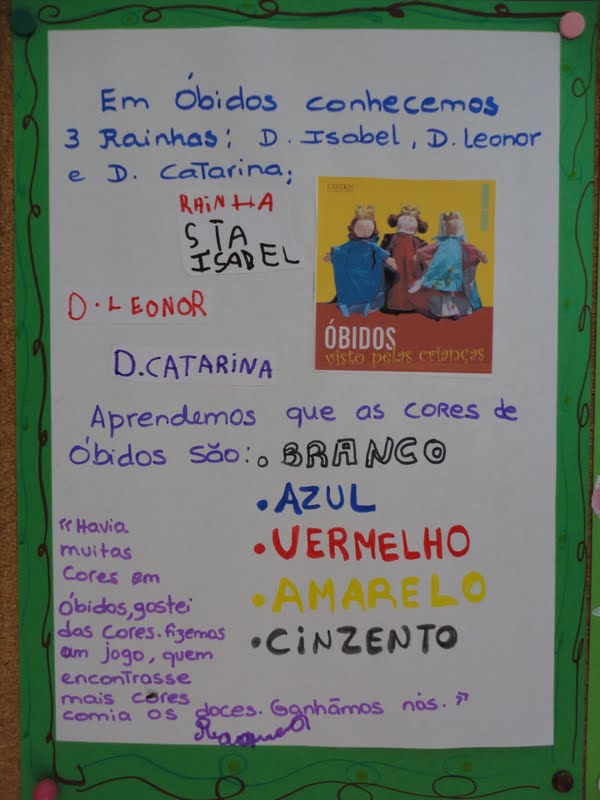 Em Óbidos conhecemos
3 Rainhas: D. Isabel, D. Leonor
e D. Catarina;
RAINHA
STA
ISABEL
D. LEONOR
D. CATARINA
ÓBIDOS
visto pelas crianças
Aprendemos que as cores de
Óbidos são: . BRANCO
. AZUL
. VERMELHO
. AMARELO
. CINZENTO
"Havia
muitas
cores em
óbidos, gostei
das cores. fizemos
um jogo, quem
encontrasse
mais cores
comia os doces. Ganhámos nós."